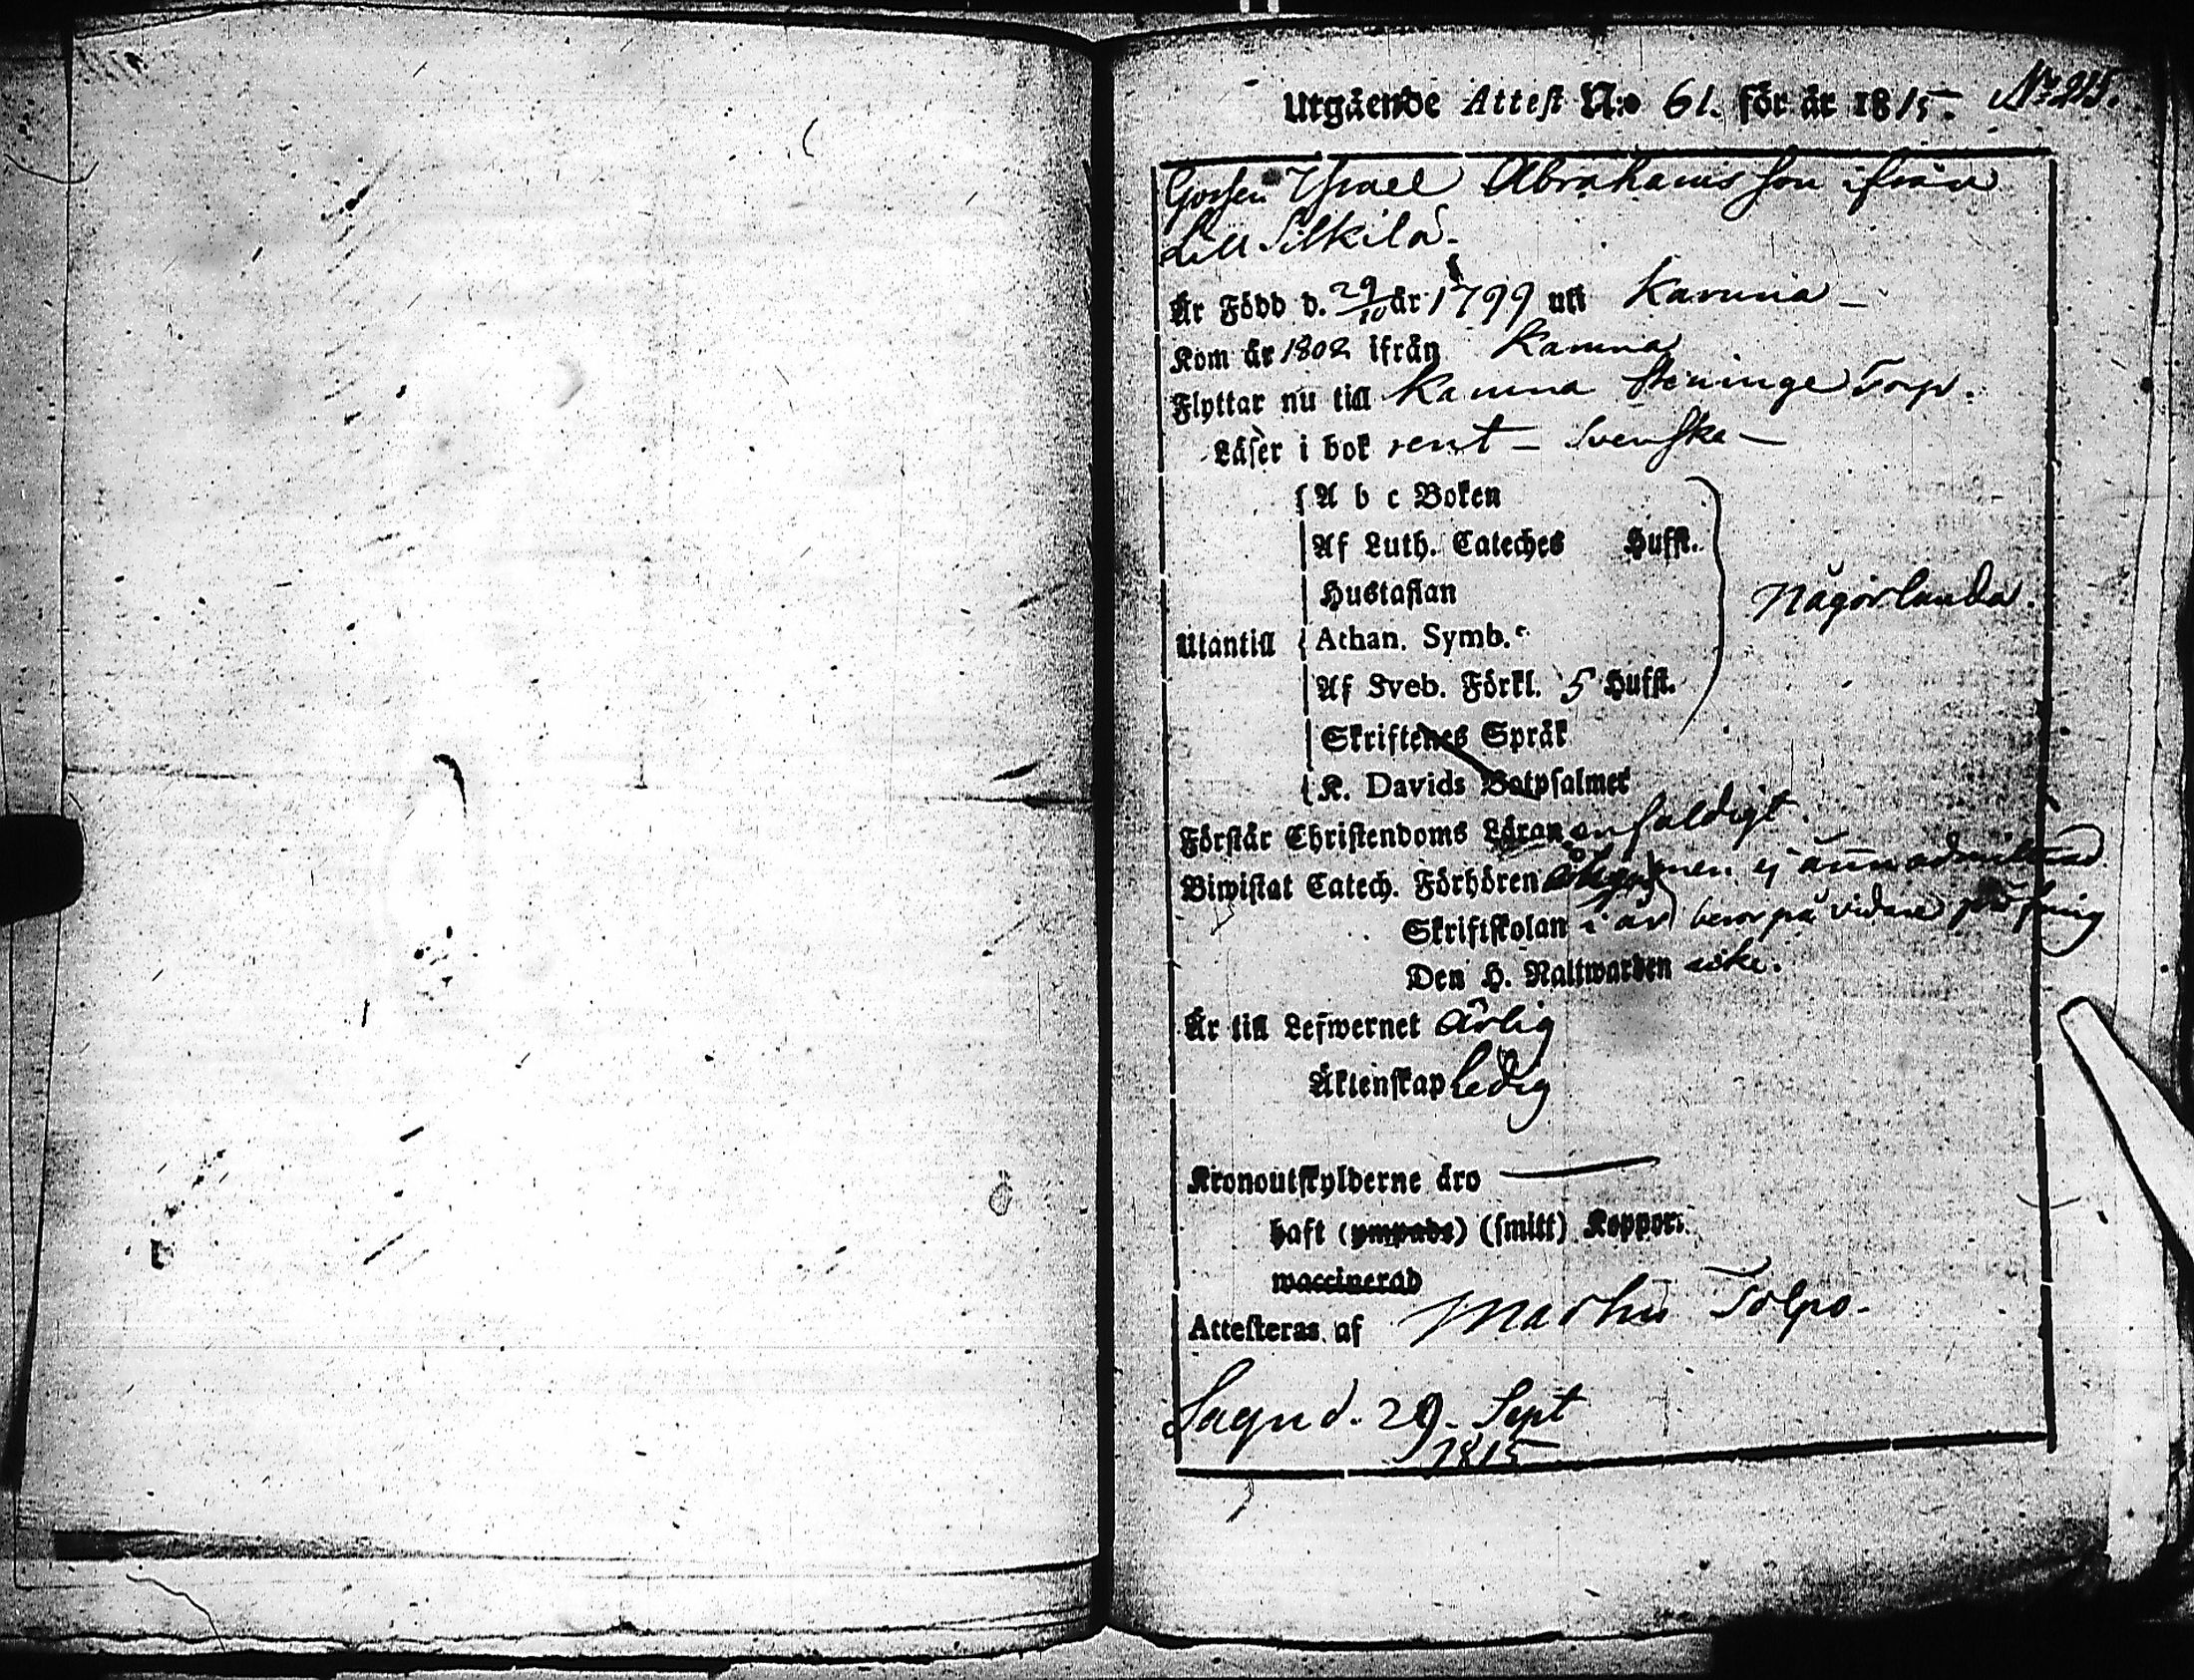 Utgående Attest N:o 61. för år 1815. No 215.
Gossen Israel Abrahamsson ifrån
Lill Silkilä.
Är Född d. 29/10 år 1799 uti Karuna
Kom år 1802 ifrån Karuna
Flyttar nu till Karuna Steninge Torp.
Läser i bok rent - Svenska -
A b c Boken
Af Luth. Cateches Hufst.
Hustaflan
Någorlunda.
Utantill Athan. Symb.
Af Sveb. Förkl. 5 Hufst.
Skriftenes Språk
K. Davids Botpsalmer
Förstår Christendoms Läran enfaldigt.
Biwistat Catech. Förhören men ej ännu admitterad
Skriftskolan i år beror på vidare pröfning
Den H. Nattwarden icke.
Är till Lefwernet ärlig
Äktenskap ledig
Kronoutskylderne äro
haft (ympade) (smitt) Koppor.
waccinerad
Attesteras af Tolpo.
Sagu d. 29. Sept
1815